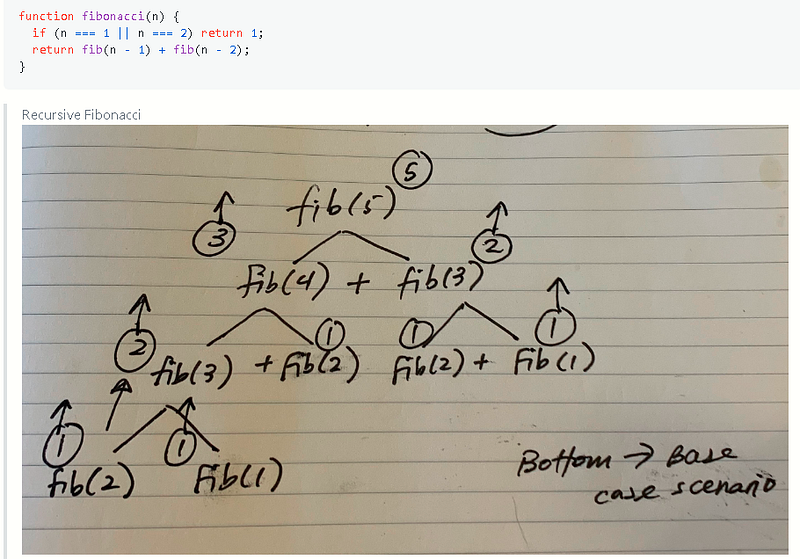 function fibonacci(n) {
if (n === 1 || n === 2) return 1;
return fib(n - 1) + fib(n - 2);
}
Recursive Fibonacci
5
fib(5)
3
2
fib(4) + fib(3)
2
1
1
1
fib(3) + fib(2)
fib(2) + fib(1)
1
1
fib(2)
fib(1)
Bottom → Base
case scenario